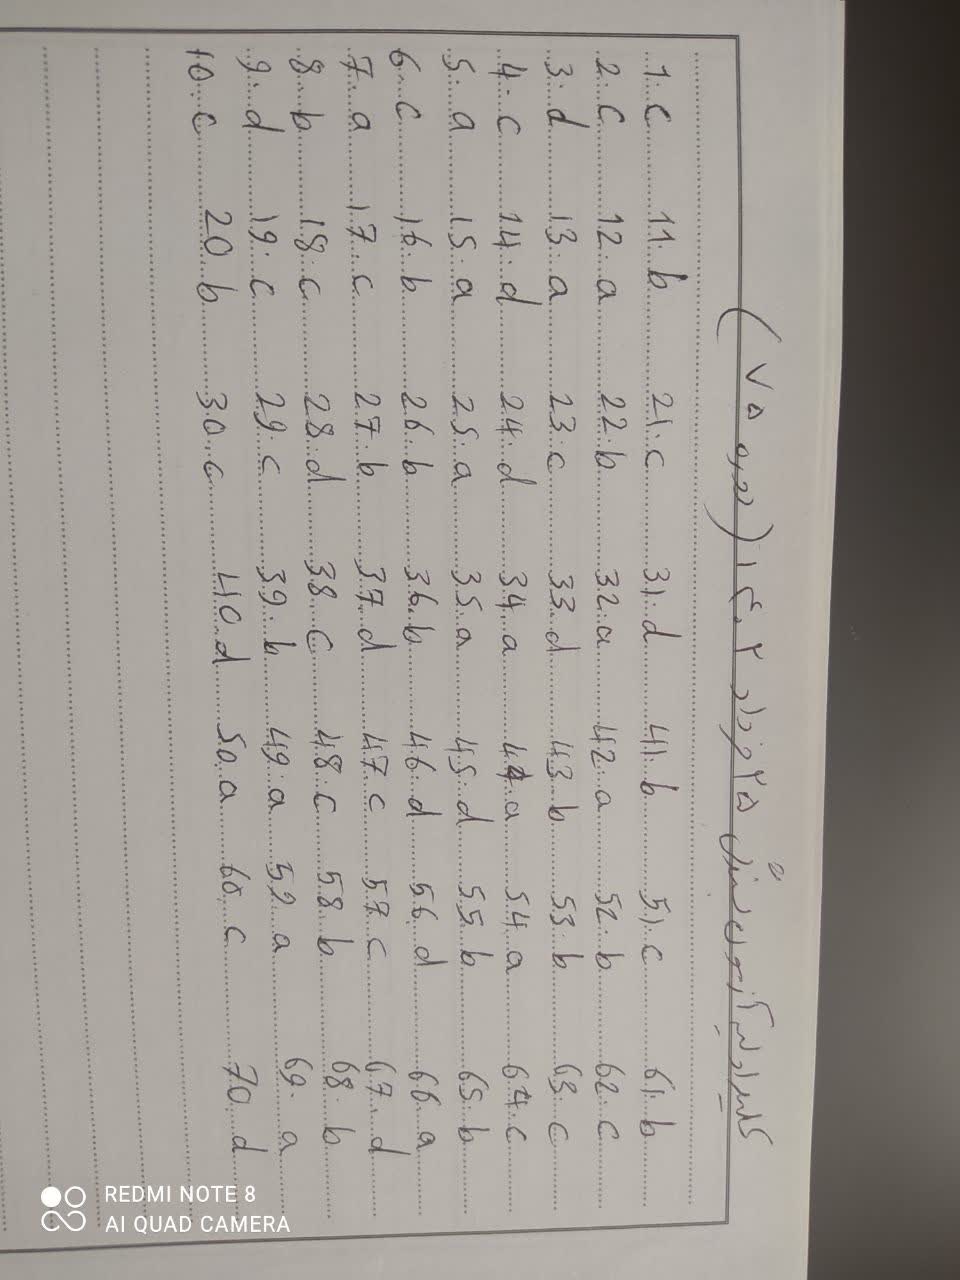 کلید آزمون شیمی ۵ فروردین ۱۴۰۲ (دوره ۷۵)
1. c 11. b 21. c 31. d 41. b 51. c 61. b
2. c 12. a 22. b 32. a 42. a 52. b 62. c
3. d 13. a 23. c 33. d 43. b 53. b 63. c
4. c 14. d 24. d 34. a 44. a 54. a 64. c
5. a 15. a 25. a 35. a 45. d 55. b 65. b
6. c 16. b 26. b 36. b 46. d 56. d 66. a
7. a 17. c 27. b 37. d 47. c 57. c 67. d
8. b 18. c 28. d 38. c 48. c 58. b 68. b
9. d 19. c 29. c 39. b 49. a 59. a 69. a
10. c 20. b 30. c 40. d 50. a 60. c 70. d
REDMI NOTE 8
AI QUAD CAMERA